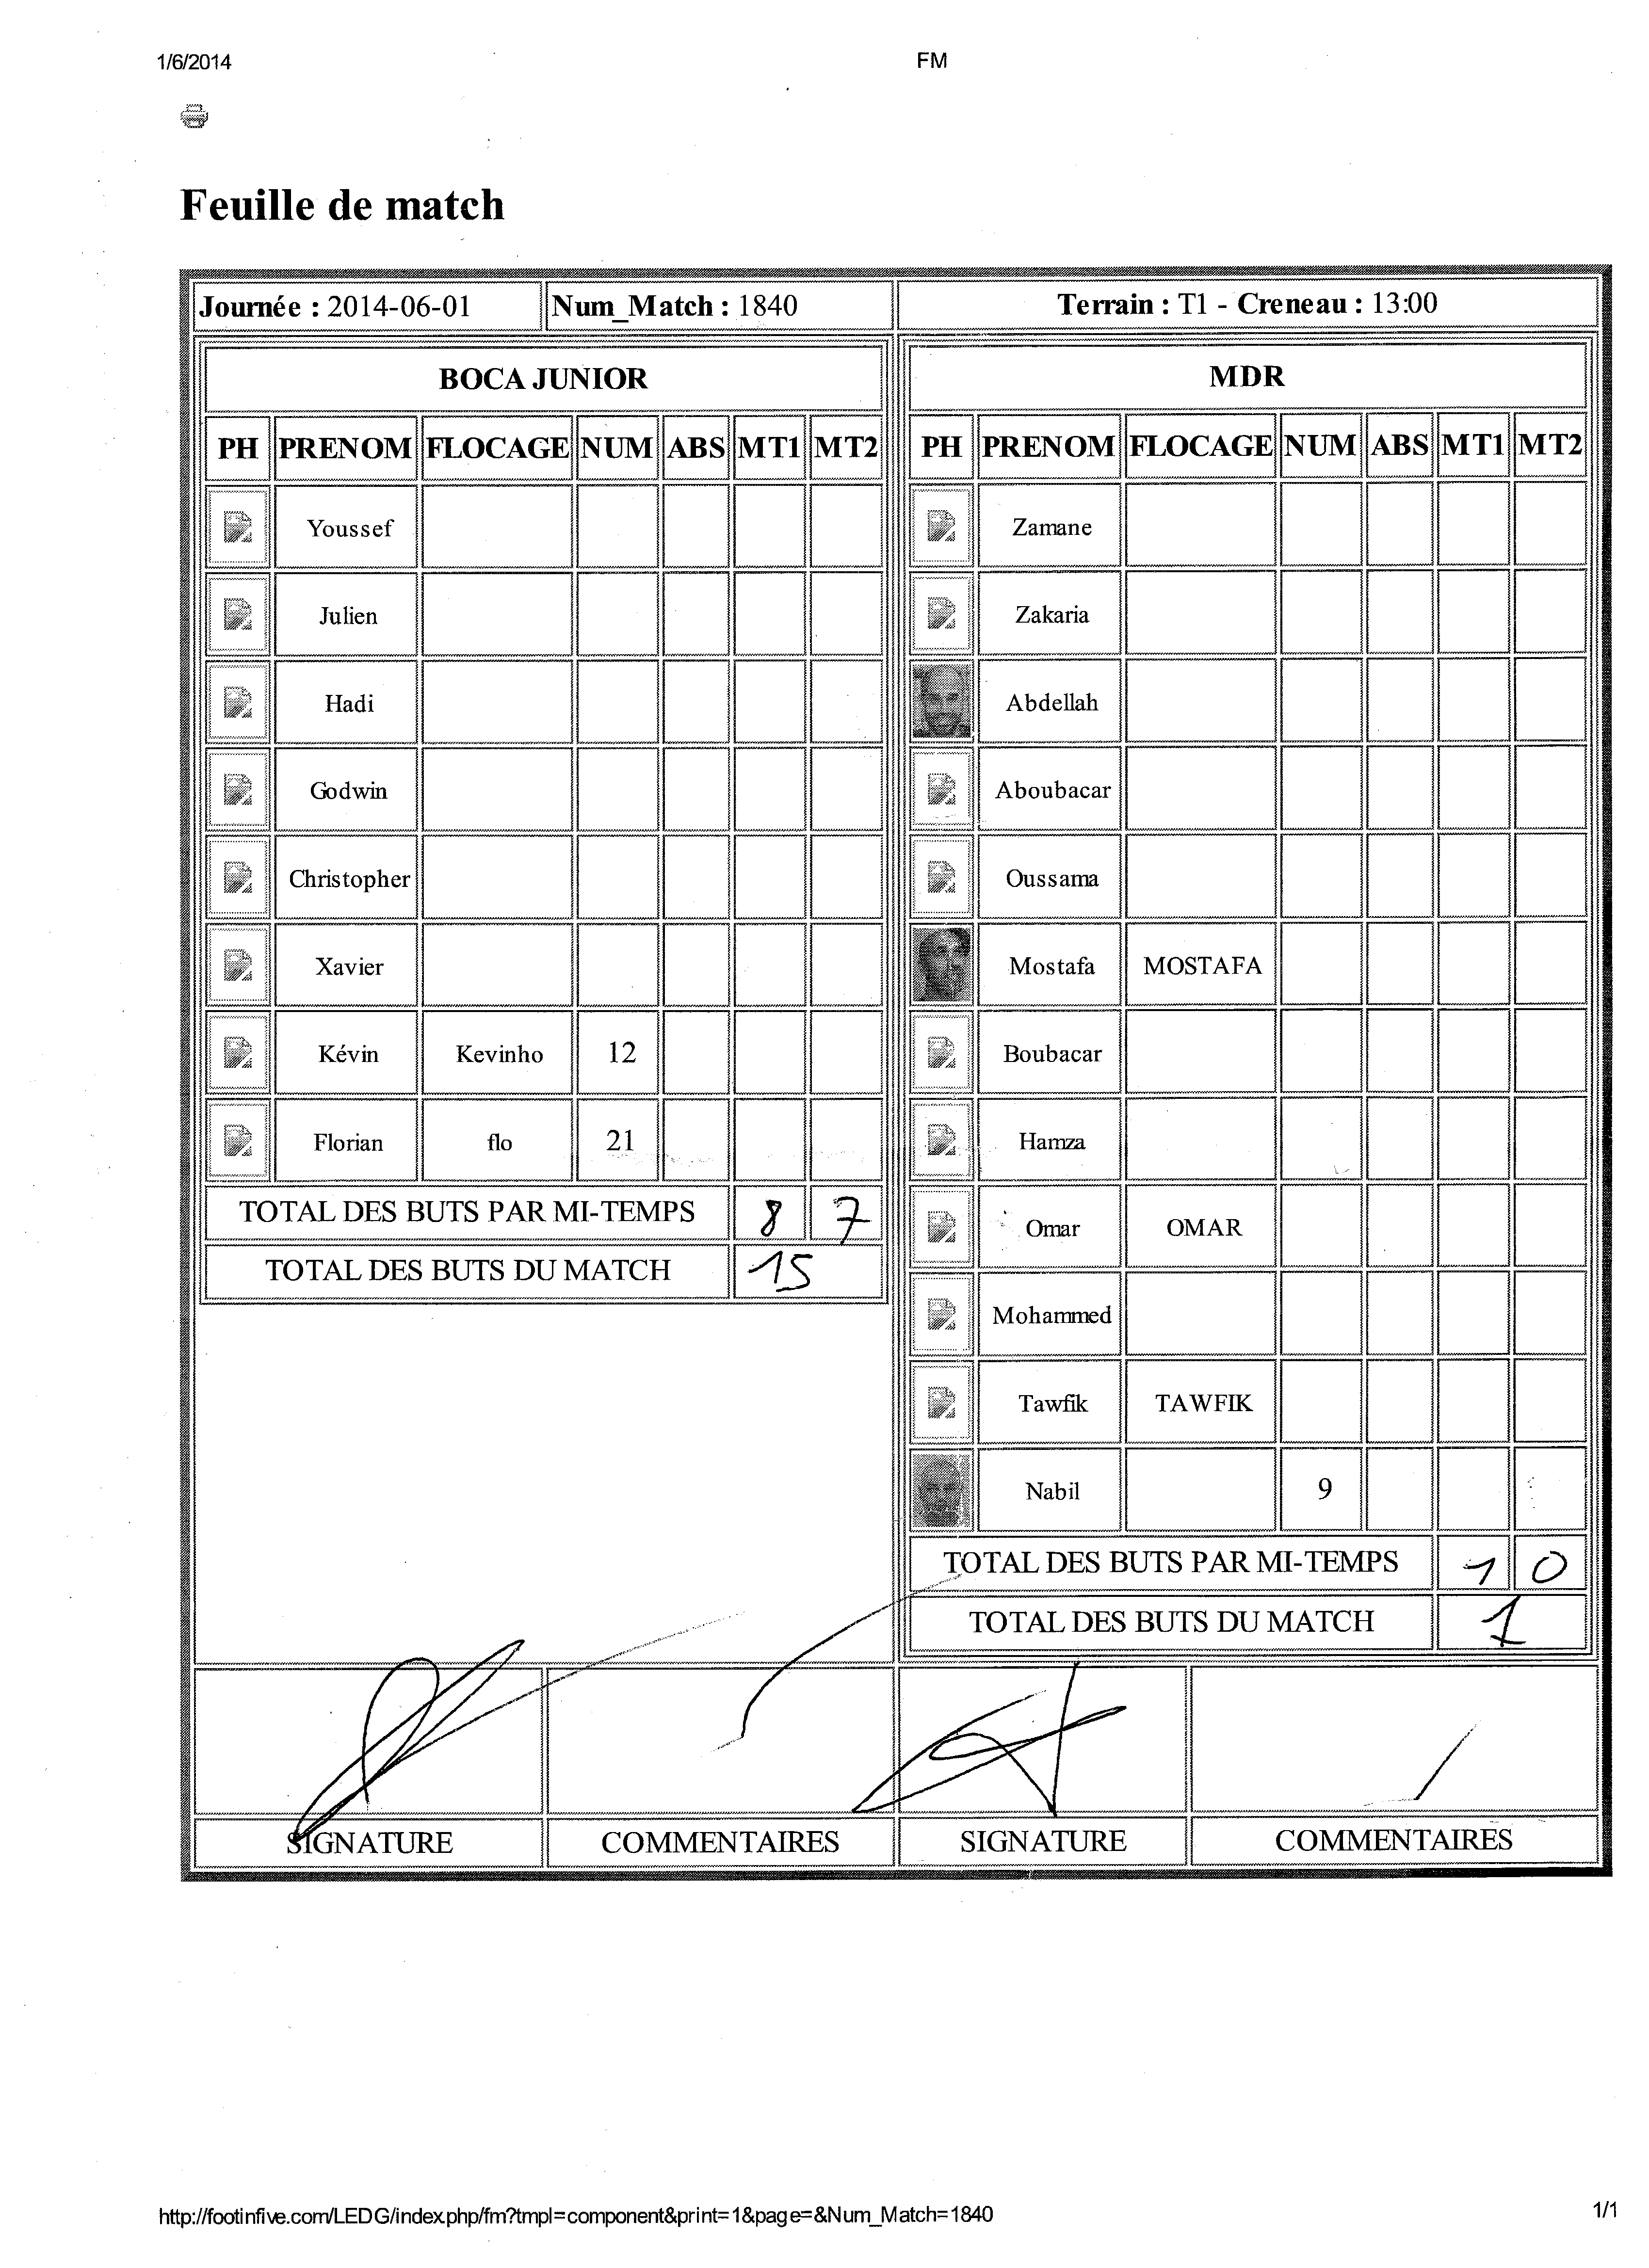 1/6/2014 FM
Feuille de match
Journée : 2014-06-01 Num_Match : 1840 Terrain : T1 - Creneau : 13:00
BOCA JUNIOR
PH PRENOM FLOCAGE NUM ABS MT1 MT2
Youssef
Julien
Hadi
Godwin
Christopher
Xavier
Kévin Kevinho 12
Florian flo 21
TOTAL DES BUTS PAR MI-TEMPS 8 7
TOTAL DES BUTS DU MATCH 15
MDR
PH PRENOM FLOCAGE NUM ABS MT1 MT2
Zamane
Zakaria
Abdellah
Aboubacar
Oussama
Mostafa MOSTAFA
Boubacar
Hamza
Omar OMAR
Mohammed
Tawfik TAWFIK
Nabil 9
TOTAL DES BUTS PAR MI-TEMPS 1 0
TOTAL DES BUTS DU MATCH 1
SIGNATURE COMMENTAIRES SIGNATURE COMMENTAIRES
http://footinfive.com/LEDG/index.php/fm?tmpl=component&print=1&page=&Num_Match=1840 1/1